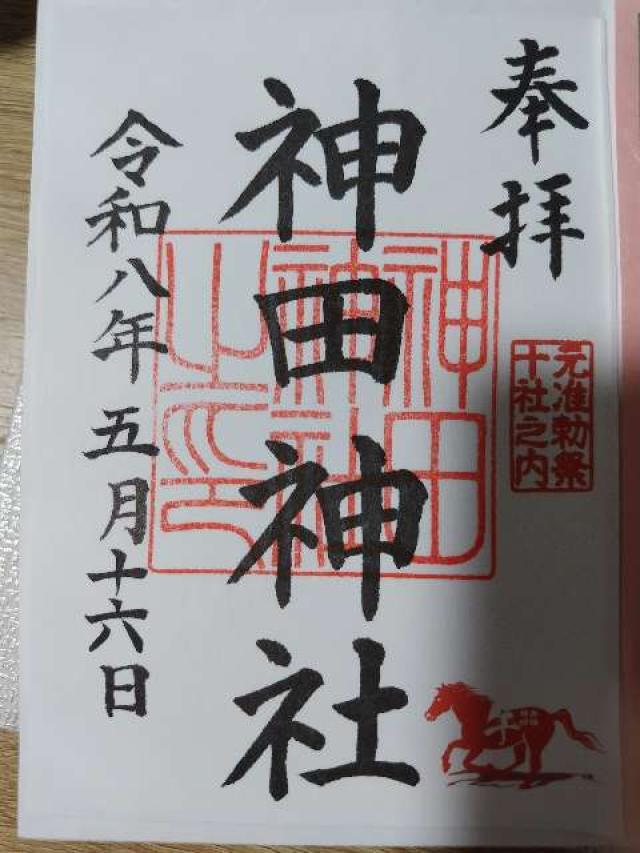 奉拝
元准勅祭
十社之内
神田神社
神田
神社
之印
令和八年五月十六日